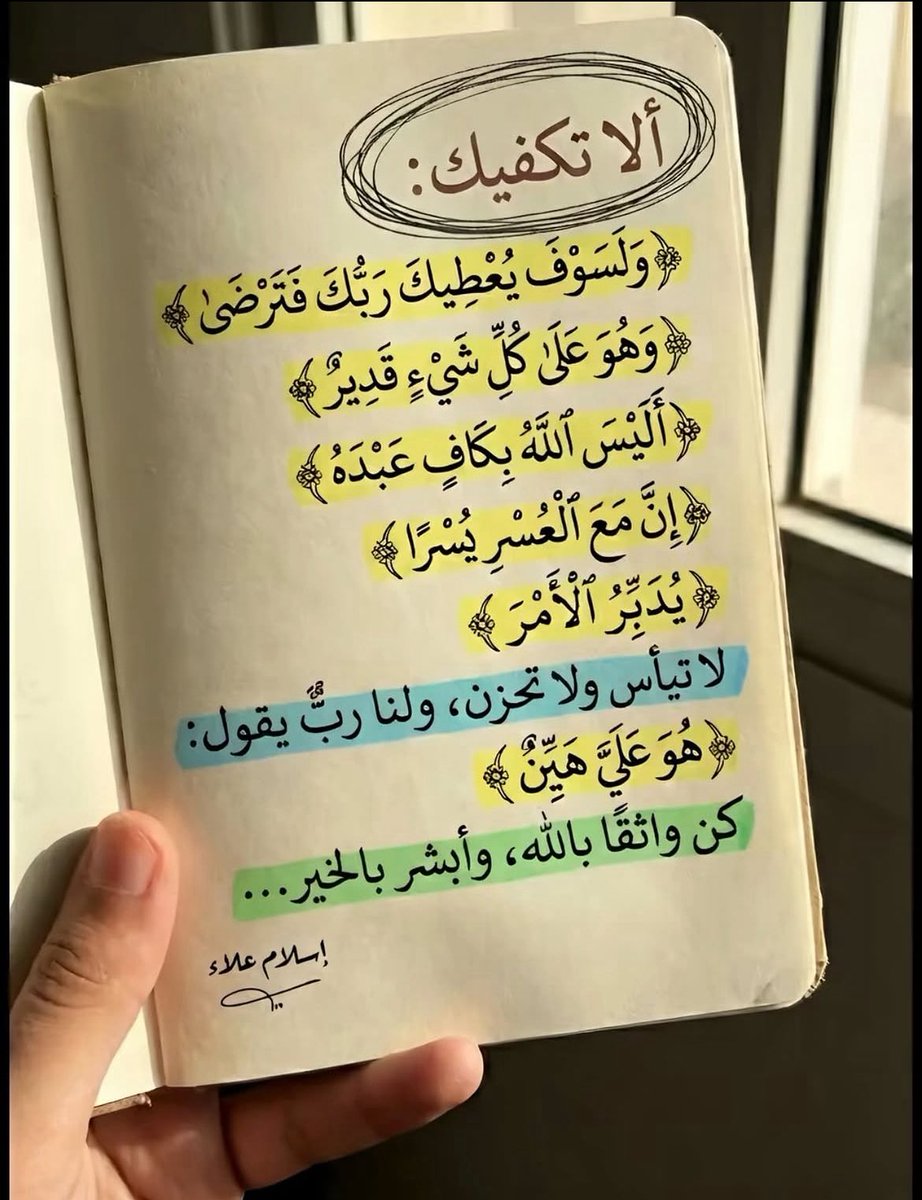 ألا تكفيك:
﴿وَلَسَوْفَ يُعْطِيكَ رَبُّكَ فَتَرْضَىٰ﴾
﴿وَهُوَ عَلَىٰ كُلِّ شَيْءٍ قَدِيرٌ﴾
﴿أَلَيْسَ ٱللَّهُ بِكَافٍ عَبْدَهُ﴾
﴿إِنَّ مَعَ ٱلْعُسْرِ يُسْرًا﴾
﴿يُدَبِّرُ ٱلْأَمْرَ﴾
لا تيأس ولا تحزن، ولنا ربٌّ يقول:
﴿هُوَ عَلَيَّ هَيِّنٌ﴾
كن واثقًا بالله، وأبشر بالخير...
إسلام علاء